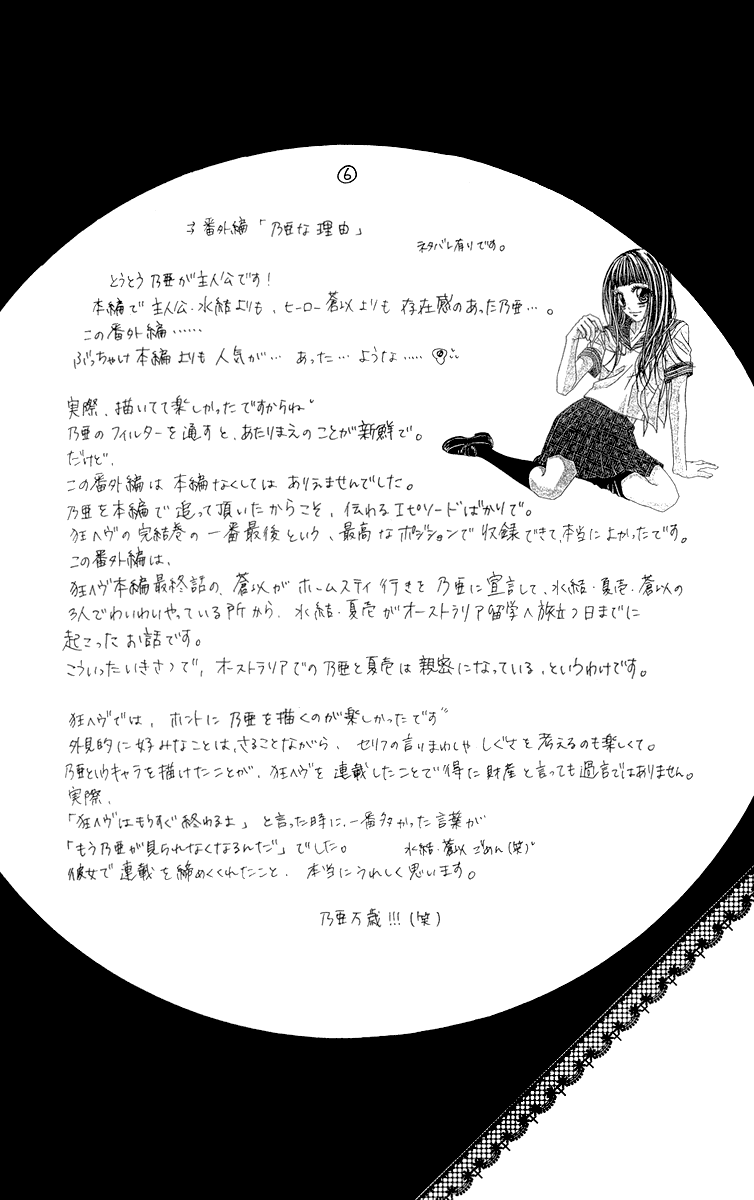 ⑥
→番外編「乃亜な理由」
ネタバレ有りです。
とうとう乃亜が主人公です!
本編で主人公・水結よりも、ヒーロー蒼以よりも存在感のあった乃亜…。
この番外編……
ぶっちゃけ本編よりも人気が… あった… ような……
実際、描いてて楽しかったですからね。
乃亜のフィルターを通すと、あたりまえのことが新鮮で。
だけど、
この番外編は本編なくしてはありえませんでした。
乃亜を本編で追って頂いたからこそ、伝わるエピソードばかりで。
狂ヘヴの完結巻の一番最後という、最高なポジションで収録できて、本当によかったです。
この番外編は、
狂ヘヴ本編最終話の、蒼以がホームステイ行きを乃亜に宣言して、水結・夏壱・蒼以の
3人でわいわいやっている所から、水結・夏壱がオーストラリア留学へ旅立つ日までに
起こったお話です。
こういったいきさつで、オーストラリアでの乃亜と夏壱は親密になっている、というわけです。
狂ヘヴでは、ホントに乃亜を描くのが楽しかったです
外見的に好みなことは、さることながら、セリフの言いまわしや しぐさを考えるのも楽しくて。
乃亜というキャラを描けたことが、狂ヘヴを連載したことで得た財産と言っても過言ではありません。
実際、
「狂ヘヴはもうすぐ終わるよ」と言った時に、一番多かった言葉が
「もう乃亜が見られなくなるんだ」でした。 水結・蒼以ごめん(笑)。
彼女で連載を締めくくれたこと、本当にうれしく思います。
乃亜万歳!!!(笑)